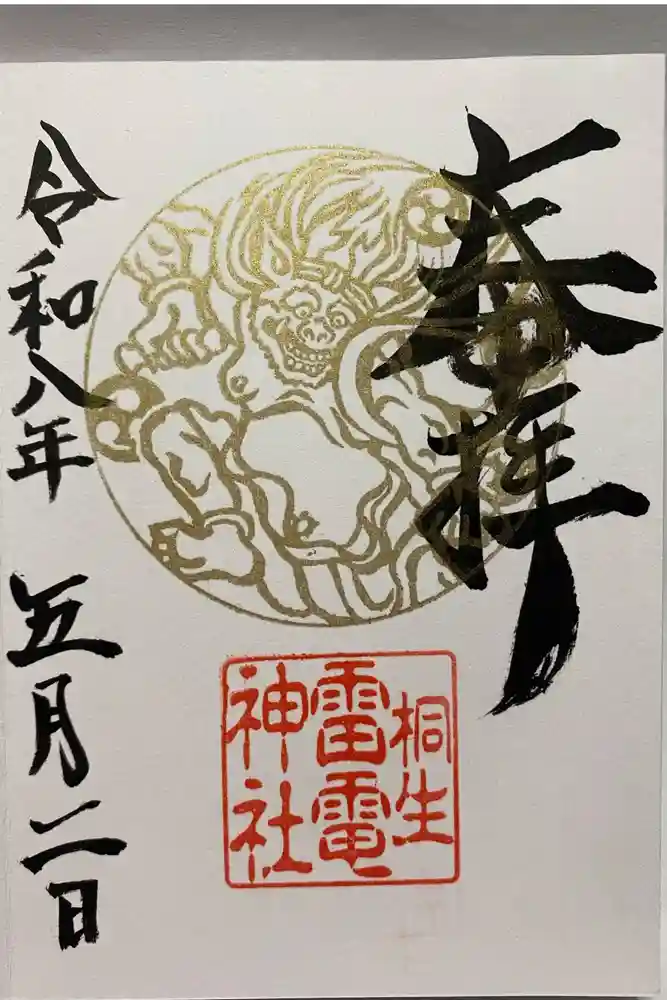 奉拝
桐生
雷電
神社
令和八年
五月二日